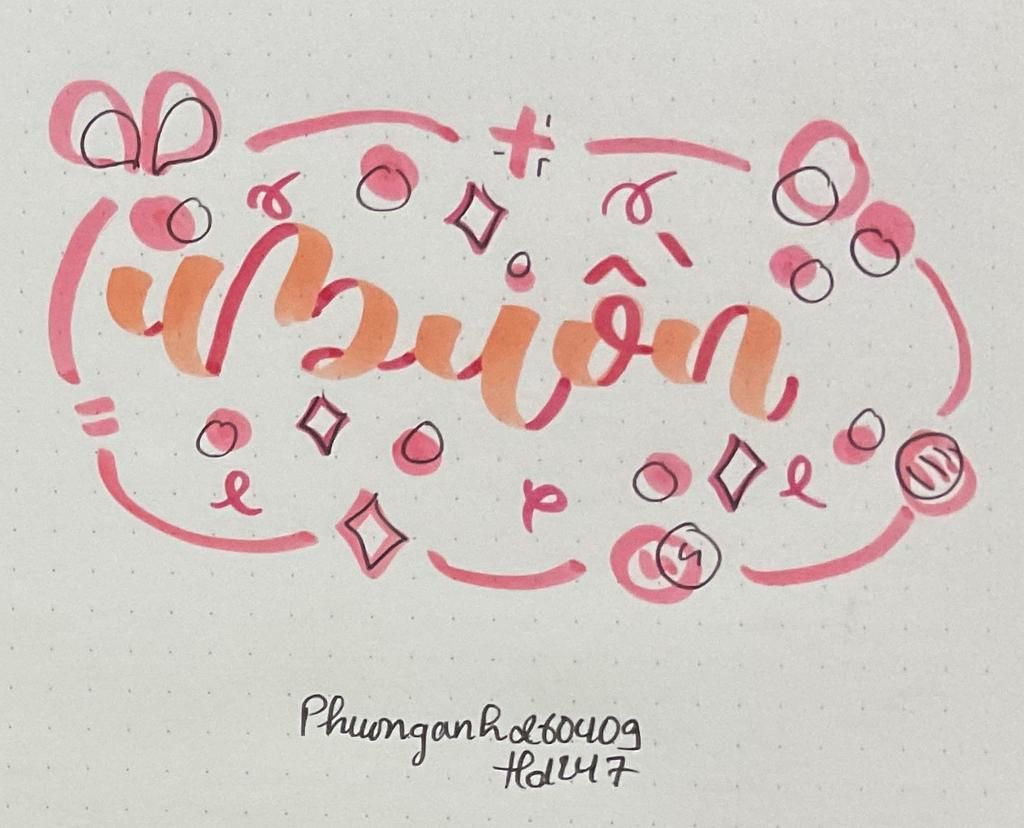 Buồn
Phuonganh260409
Hd247